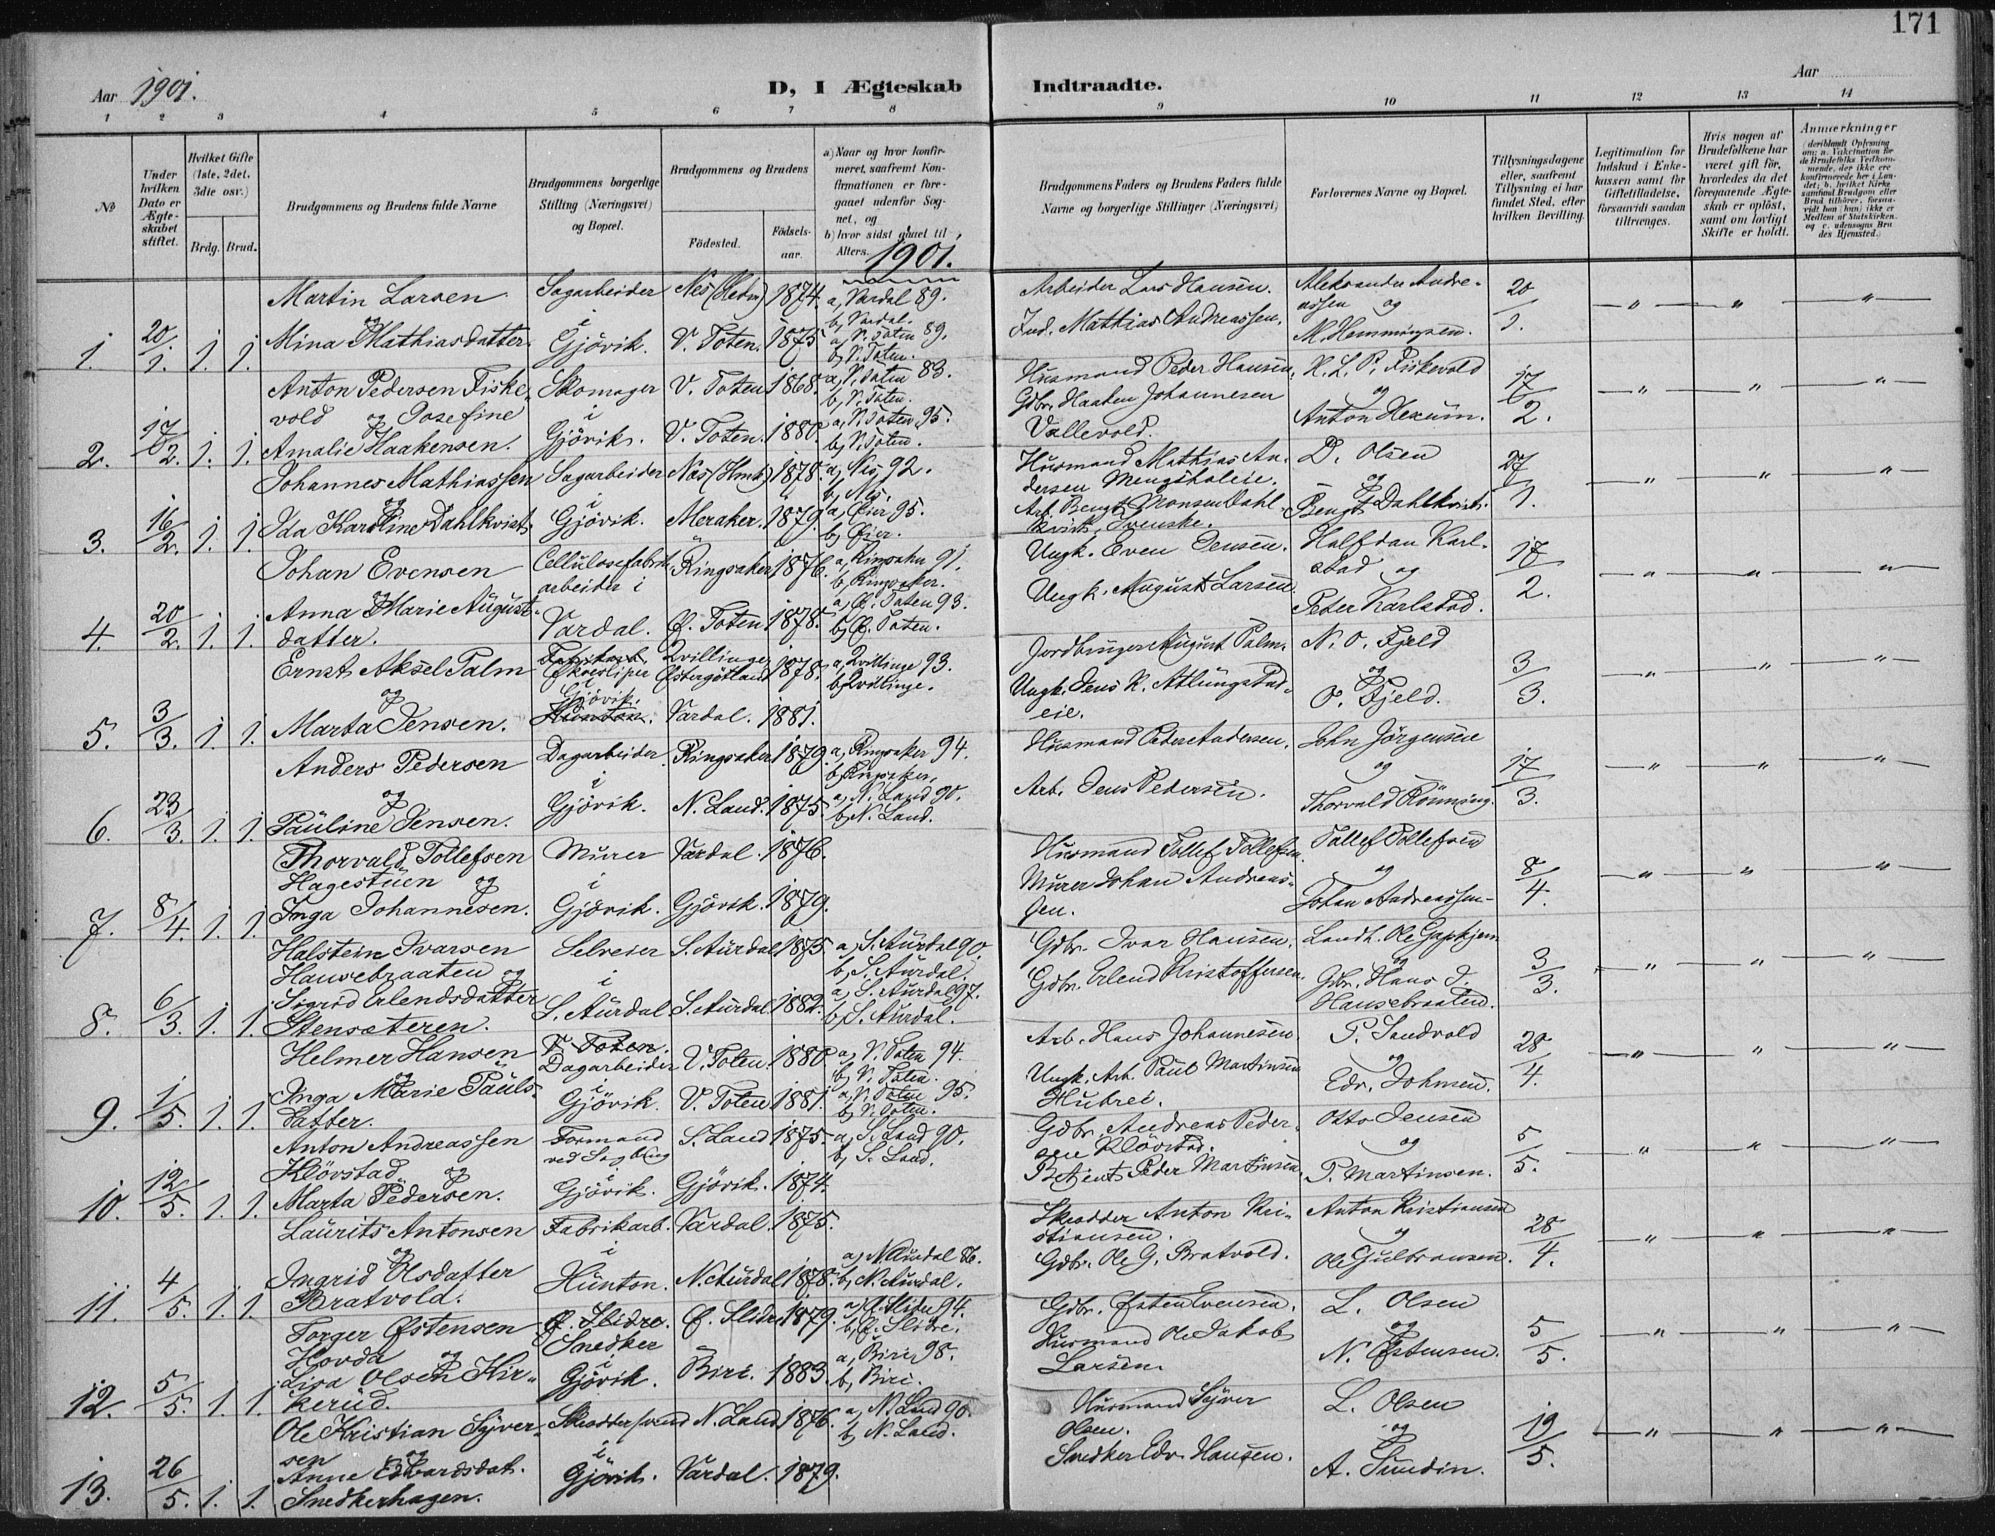 171
Aar 1901.
D, I Ægteskab Indtraadte.
Aar
1 2 3 4 5 6 7 8 9 10 11 12 13 14
№
Under hvilken Dato er Ægteskabet stiftet.
Hvilket Gifte (1ste, 2det, 3die osv.)
Brdg. Brud.
Brudgommens og Brudens fulde Navne
Brudgommens borgerlige Stilling (Næringsvei) og Bopæl.
Brudgommens og Brudens
Fødested.
Fødselsaar.
a) Naar og hvor konfirmeret, saafremt Konfirmationen er foregaaet udenfor Sognet, og
b) hvor sidst gaaet til Alters.
1901.
Brudgommens Faders og Brudens Faders fulde Navne og borgerlige Stillinger (Næringsvei)
Forlovernes Navne og Bopæl.
Tillysningsdagene eller, saafremt Tillysning ei har fundet Sted, efter hvilken Bevilling.
Legitimation for Indskud i Enkekassen samt for Giftetilladelse, forsaavidt saadan tiltrænges.
Hvis nogen af Brudefolkene har været gift før, hvorledes da det foregaaende Ægteskab er opløst, samt om lovligt Skifte er holdt.
Anmærkninger
1. 20/1. 1. 1.
Martin Larsen Sagarbeider Nes (Hedm) 1874. a, Vardal 89. b, Vardal. Arbeider Lars Hansen. Aleksander Andreassen og 20/1.
og i
Mina Mathiasdatter. Gjøvik. V. Toten. 1875 a, V. Toten 89. b, V. Toten. Ind. Mathias Andreassen. M. Hemmingsen.
2. 17/2. 1. 1.
Anton Pedersen Fiskevold Skomager V. Toten 1868. a, V. Toten 83. b, V. Toten. Husmand Peder Hansen. H. L. P. Fiskevold 17/2.
og Josefine i og
Amalie Haakensen. Gjøvik. V. Toten. 1880. a, V. Toten 95. b, V. Toten. Gdbr. Haaken Johannesen Vollevold. Anton Hexum.
3. 16/2. 1. 1.
Johannes Mathiassen Sagarbeider Nes (Hmk) 1878. a, Nes 92. b, Nes. Husmand Mathias Andersen Mengsholeie. D. Olsen 27/1.
og i og
Ida Karoline Dahlkvist. Gjøvik. Meraker. 1879. a, Øier 95. b, Øier. Arb. Bengt Monsen Dahlkvist, Svenske. Bengt Dahlkvist.
4. 20/2. 1. 1.
Johan Evensen Cellulosefabrikarbeider i Ringsaker 1876. a, Ringsaker 91. b, Ringsaker. Ungk. Even Jensen. Halfdan Karlstad og 17/2.
og
Anna Marie Augustdatter. Vardal. Ø. Toten 1878. a, Ø. Toten 93. b, Ø. Toten. Ungk. August Larsen Peter Karlstad.
5. 3/3. 1. 1.
Ernst Aksel Palm Qvillinge Østergøtland 1878. a, Qvillinge 93. b, Qvillinge. Jordbruger August Palm. N. O. Fjeld 3/3.
og i Gjøvik. og
Marta Jensen. Hunton. Vardal. 1881. Ungk. Jens K. Atlungstadeie. O. Fjeld.
6. 23/3. 1. 1.
Anders Pedersen Dagarbeider Ringsaker 1879. a, Ringsaker 94. b, Ringsaker. Husmand Peder Andersen. John Jørgensen 17/3.
og i og
Pauline Jensen. Gjøvik. N. Land. 1875. a, N. Land 90. b, N. Land. Arb. Jens Pedersen. Thorvald Rønning.
7. 8/4. 1. 1.
Thorvald Tollefsen Hagestuen og Murer Vardal. 1876. Husmand Tollef Tollefsen. Tollef Tollefsen 8/4.
i og
Inga Johannesen. Gjøvik. Gjøvik. 1879. Murer Johan Andreassen. Johan Andreassen
8. 6/3. 1. 1.
Halstein Ivarsen Hausebraaten og Selveier S. Aurdal 1875 a, S. Aurdal 90. b, S. Aurdal. Gdbr. Ivar Hansen. Landh. Ole Gaphjem 3/3.
i og
Sigrid Erlendsdatter Stensæteren. S. Aurdal S. Aurdal 1882. a, S. Aurdal 97. b, S. Aurdal. Gdbr. Erlend Kristoffersen. Gdbr. Hans I. Hausebraaten.
9. 1/5. 1. 1.
Helmer Hansen V. Toten. Dagarbeider V. Toten. 1880 a, V. Toten 94. b, V. Toten. Arb. Hans Johannesen. P. Sandvold 28/4.
og i og
Inga Marie Paulsdatter. Gjøvik. V. Toten 1881. a, V. Toten 95. b, V. Toten. Ungk. Arb. Paul Martinsen Edv. Johnsen.
10. 12/5. 1. 1.
Anton Andreassen Kløvstad og Formand ved Sagbrug S. Land 1875 a, S. Land 90. b, S. Land. Gdbr. Andreas Pedersen Kløvstad. Otto Jensen 5/5.
i og
Marta Pedersen. Gjøvik. Gjøvik. 1874. Betjent Peder Martinsen. P. Martinsen.
11. 4/5. 1. 1.
Laurits Antonsen Fabrikarb. Vardal. 1875. Skrædder Anton Kristiansen. Anton Kristiansen 28/4.
og i og
Ingrid Olsdatter Bratvold. Hunton. N. Aurdal 1878. a, N. Aurdal b, N. Aurdal. Gdbr. Ole G. Bratvold. Ole Gulbransen.
12. 5/5. 1. 1.
Torger Østensen Hovda og Ø. Slidre. Snedker Ø. Slidre 1879. a, Ø. Slidre 94. b, Ø. Slidre. Gdbr. Østen Evensen. L. Olsen 5/5.
i og
Lisa Olsen Kirkerud. Gjøvik. Biri. 1883. a, Biri 98. b, Biri. Husmand Ole Jakob Larsen. N. Østensen.
13. 26/5. 1. 1.
Ole Kristian Syversen Skræddersvend N. Land 1876. a, N. Land 90. b, N. Land. Husmand Syver Olsen. L. Olsen 19/5.
og i og
Anne Edvardsdat. Snedkerhagen. Gjøvik. Vardal. 1879. Snedker Edv. Hansen. A. Sundin.